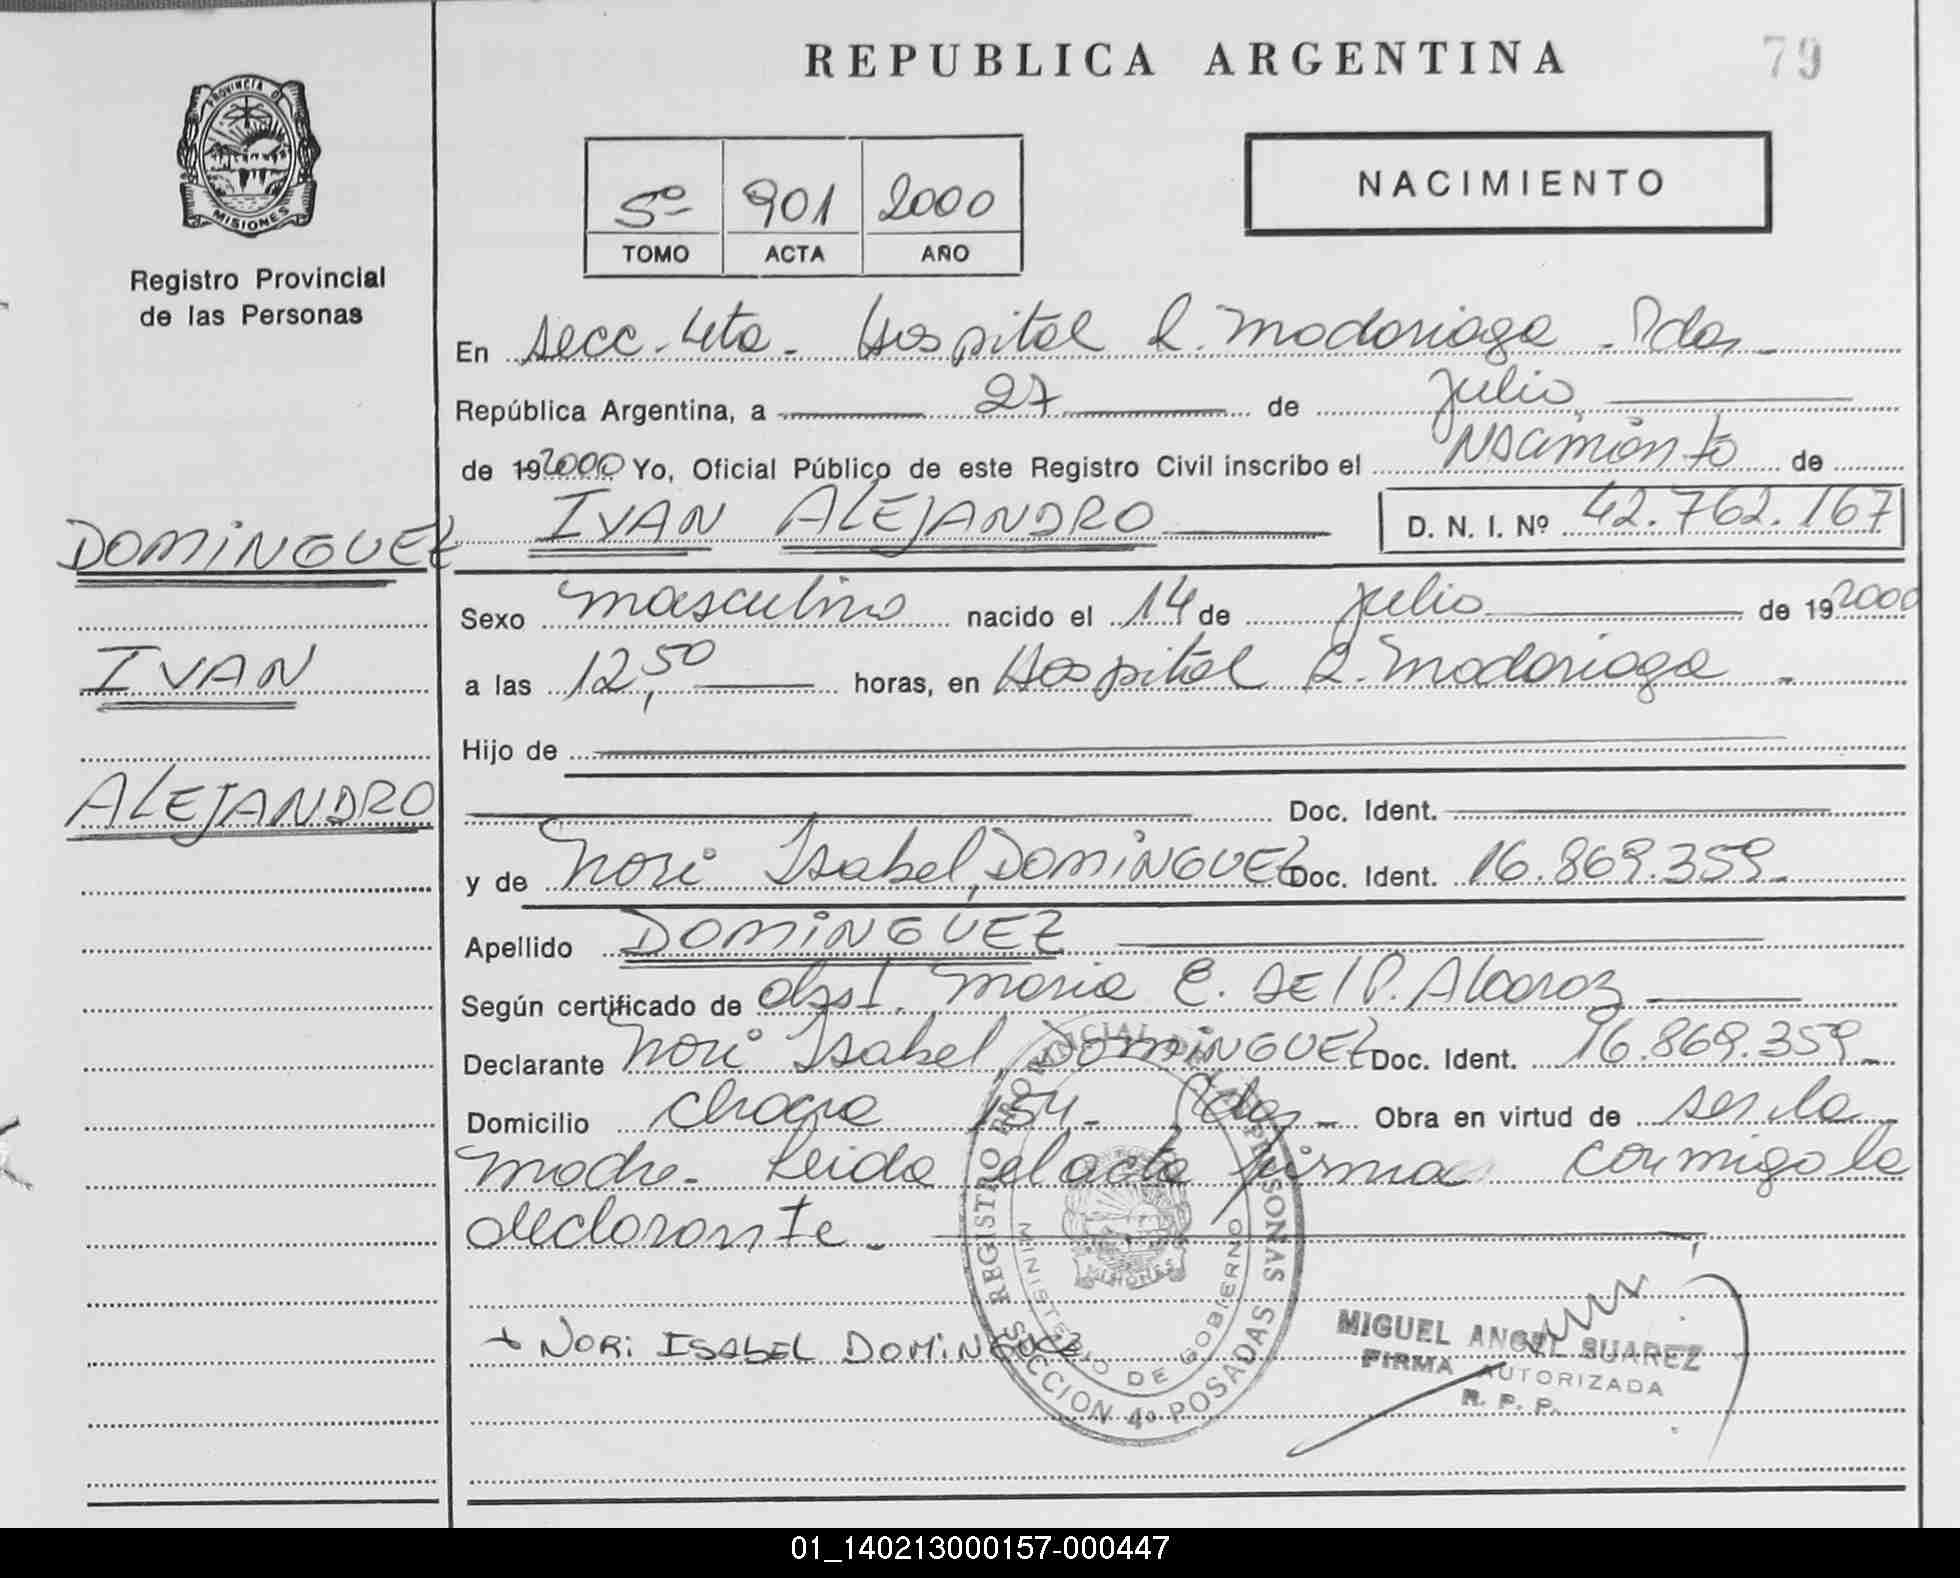 REPUBLICA ARGENTINA
79
PROVINCIA D
MISIONES
Registro Provincial
de las Personas
5º 901 2000
TOMO ACTA AÑO
NACIMIENTO
En Secc. 4ta - Hospital R. Madariaga - Pdas -
República Argentina, a 27 de Julio,
de 192000 Yo, Oficial Público de este Registro Civil inscribo el Nacimiento de
IVAN ALEJANDRO D. N. I. Nº 42.762.167
DOMINGUEZ
IVAN
ALEJANDRO
Sexo masculino nacido el 14 de Julio de 192000
a las 12,50 horas, en Hospital R. Madariaga -
Hijo de
Doc. Ident.
y de Nori Isabel, DOMINGUEZ Doc. Ident. 16.869.359-
Apellido DOMINGUEZ
Según certificado de obst. Maria E. DEL P. Alcaraz
Declarante Nori Isabel, DOMINGUEZ Doc. Ident. 16.869.359-
Domicilio chacra 154- Pdas- Obra en virtud de ser la
madre- Leida el acta firma conmigo la
declarante.-
+ NORI ISABEL DOMINGUEZ
REGISTRO PROVINCIAL DE LAS PERSONAS
MINISTERIO DE GOBIERNO
MISIONES
SECCION 4º POSADAS
MIGUEL ANGEL SUAREZ
FIRMA AUTORIZADA
R. P. P.
01_140213000157-000447